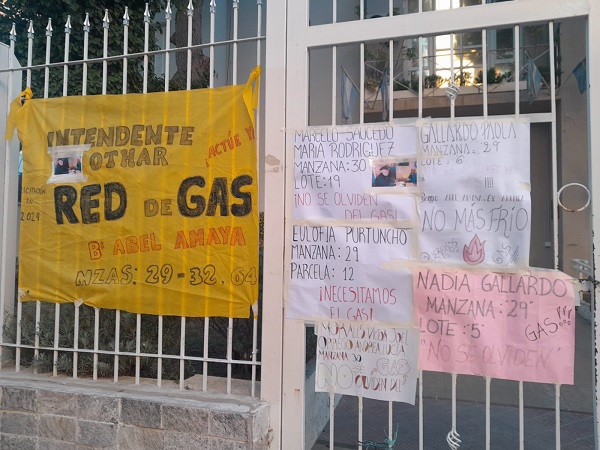 INTENDENTE
OTHAR
¡ACTÚE YA
RED DE GAS
EN
2024
Bº ABEL AMAYA
MZAS: 29-32, 64
MARCELO SAUCEDO
MARIA RODRIGUEZ
MANZANA: 30
LOTE: 19
¡NO SE OLVIDEN
DEL GAS!
GALLARDO PAOLA
MANZANA: 29
LOTE: 6
NO MÁS FRÍO
EULOFIA PURTUNCHO
MANZANA: 29
PARCELA: 12
¡NECESITAMOS
EL GAS!
NADIA GALLARDO
MANZANA: 29
LOTE: 5
GAS!!!
"NO SE OLVIDEN"
MANZANA 30
GAS
NO